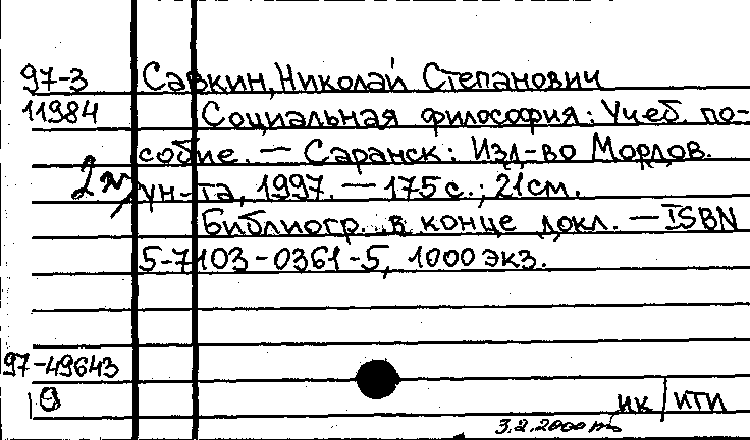 97-3 Савкин, Николай Степанович
11984 Социальная философия: Учеб. по-
собие. — Саранск: Изд-во Мордов.
2 ун-та, 1997. — 175 с.; 21 см.
Библиогр. в конце докл. — ISBN
5-7103-0361-5, 1000 экз.
97-49643
ИК | ИТИ
3.2.2000